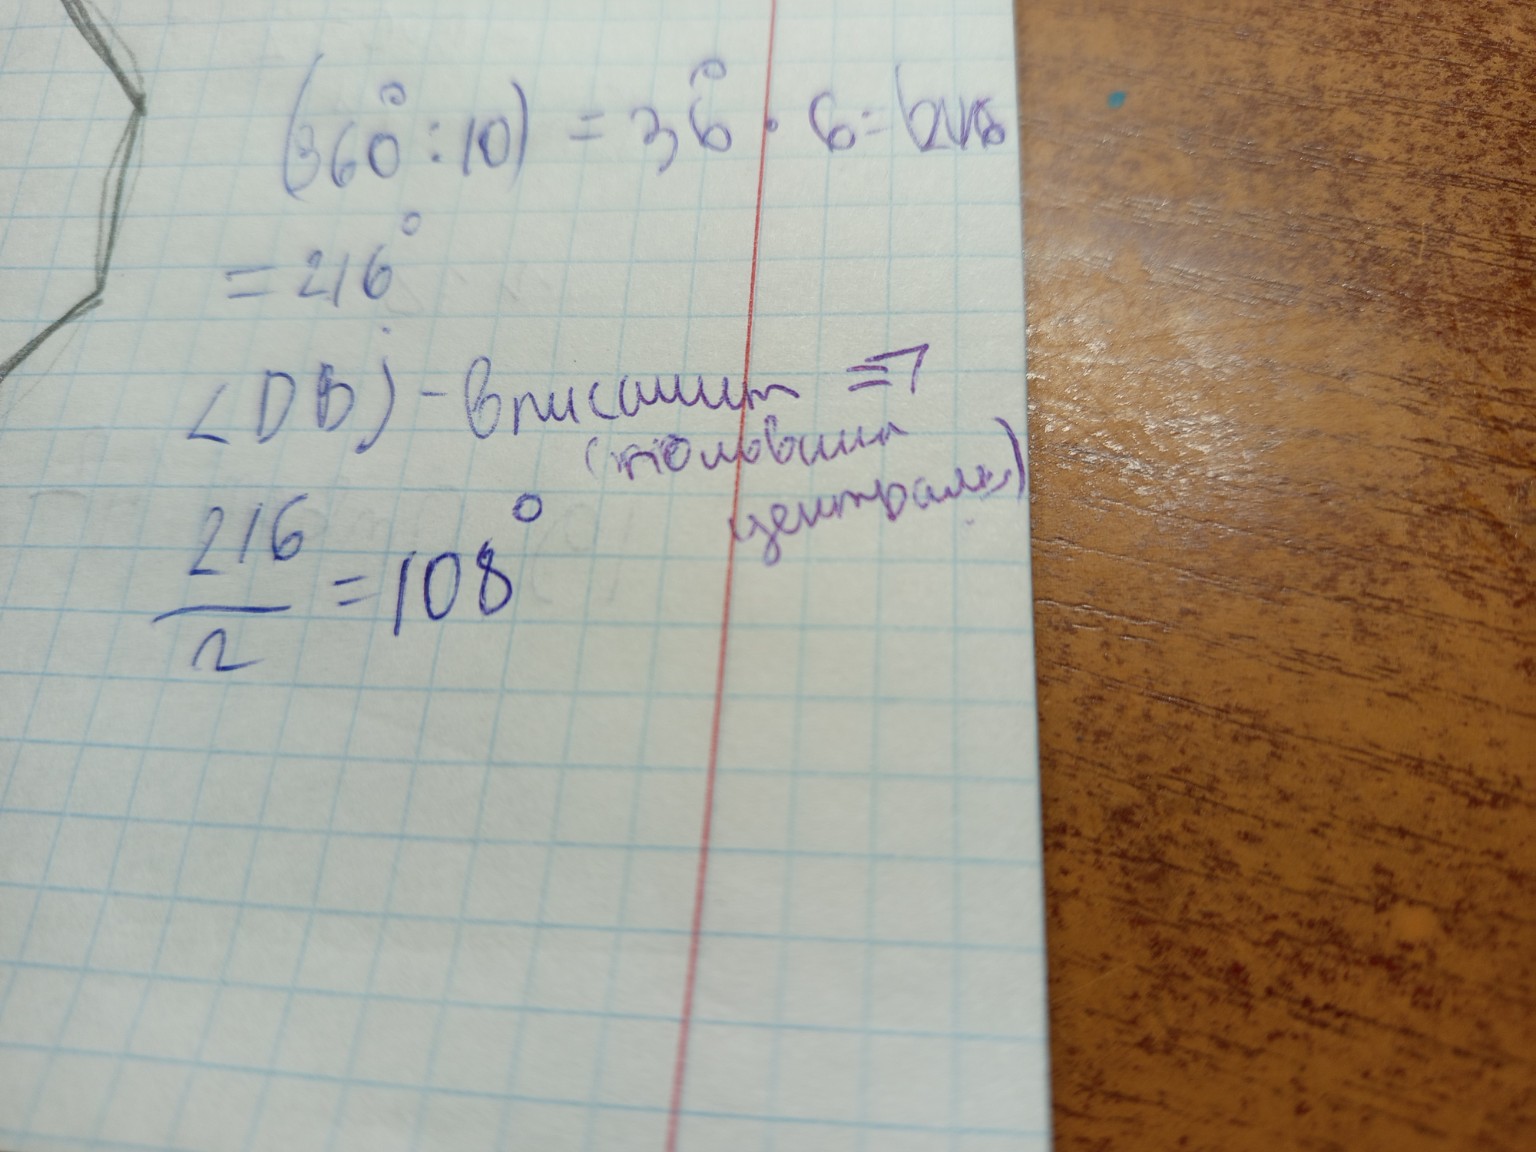 (360° : 10) = 36° · 6 =
= 216°
∠DBJ - вписанит =>
(половина
централь)
216/2 = 108°